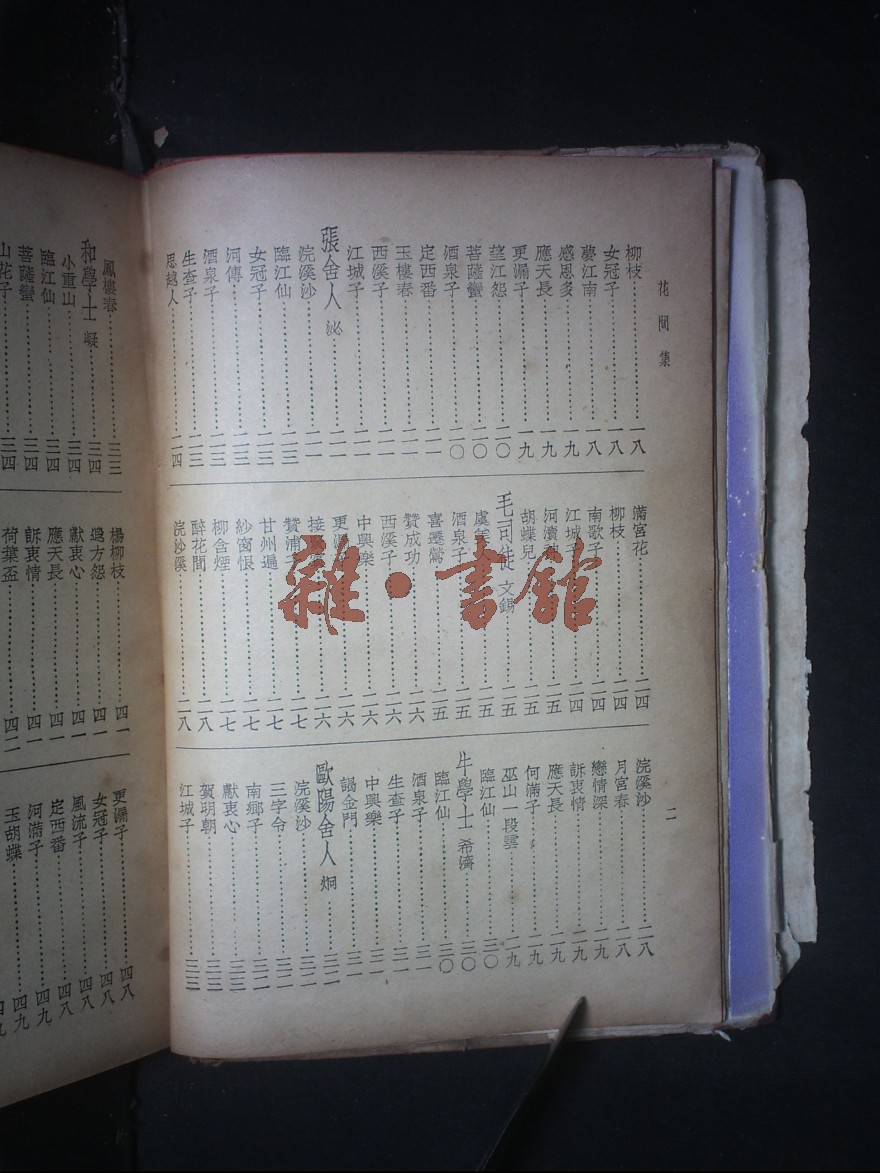 花間集
二
柳枝……一八
女冠子……一八
夢江南……一八
感恩多……一九
應天長……一九
更漏子……一九
望江怨……二〇
菩薩蠻……二〇
酒泉子……二〇
定西番……二一
玉樓春……二一
西溪子……二一
江城子……二一
張舍人 泌
浣溪沙……二一
臨江仙……二三
女冠子……二三
河傳……二三
酒泉子……二三
生查子……二三
思越人……二四
滿宮花……二四
柳枝……二四
南歌子……二四
江城子……二四
河瀆……二五
胡蝶兒……二五
毛司徒 文錫
虞美……二五
酒泉子……二五
喜遷鶯……二五
贊成功……二六
西溪子……二六
中興樂……二六
更漏……二六
接……二六
贊浦子……二七
甘州遍……二七
紗窗恨……二七
柳含煙……二七
醉花間……二八
浣沙溪……二八
浣溪沙……二八
月宮春……二八
戀情深……二九
訴衷情……二九
應天長……二九
何滿子……二九
巫山一段雲……二九
臨江仙……三〇
牛學士 希濟
臨江仙……三〇
酒泉子……三一
生查子……三一
中興樂……三一
謁金門……三一
歐陽舍人 炯
浣溪沙……三二
三字令……三二
南鄉子……三二
獻衷心……三三
賀明朝……三三
江城子……三三
鳳樓春……三三
和學士 凝
小重山……三四
臨江仙……三四
菩薩蠻……三四
山花子……三四
楊柳枝……四一
遐方怨……四一
獻衷心……四一
應天長……四一
訴衷情……四一
荷葉盃……四二
更漏子……四八
女冠子……四八
風流子……四八
定西番……四八
河滿子……四九
玉胡蝶……四九
雜·書館